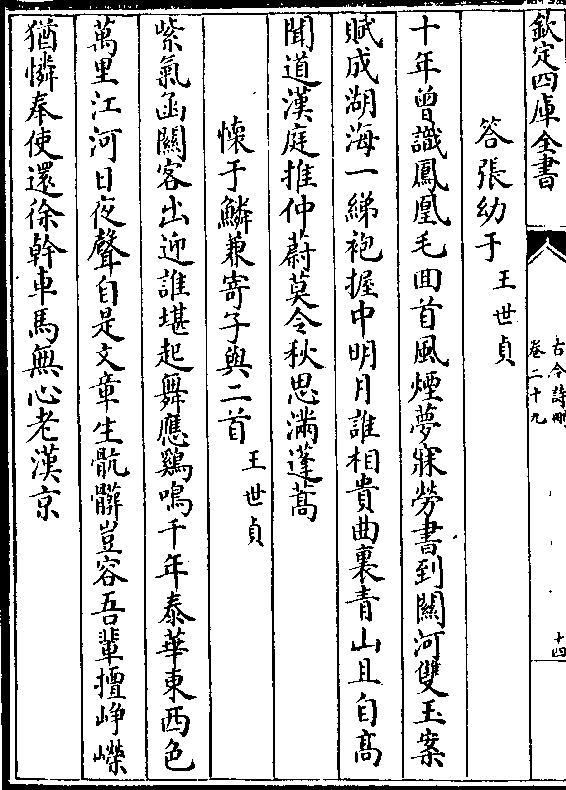 欽定四庫全書
古今詩刪
卷二十九
十四
答張幼于
王世貞
十年曾識鳳凰毛回首風煙夢寐勞書到關河雙玉案
賦成湖海一綈袍握中明月誰相貴曲裏青山且自高
聞道漢庭推仲蔚莫令秋思滿蓬蒿
懷于鱗兼寄子與二首
王世貞
紫氣函關客出迎誰堪起舞應鷄鳴千年泰華東西色
萬里江河日夜聲自是文章生骯髒豈容吾輩擅崢嶸
猶憐奉使還徐幹車馬無心老漢京